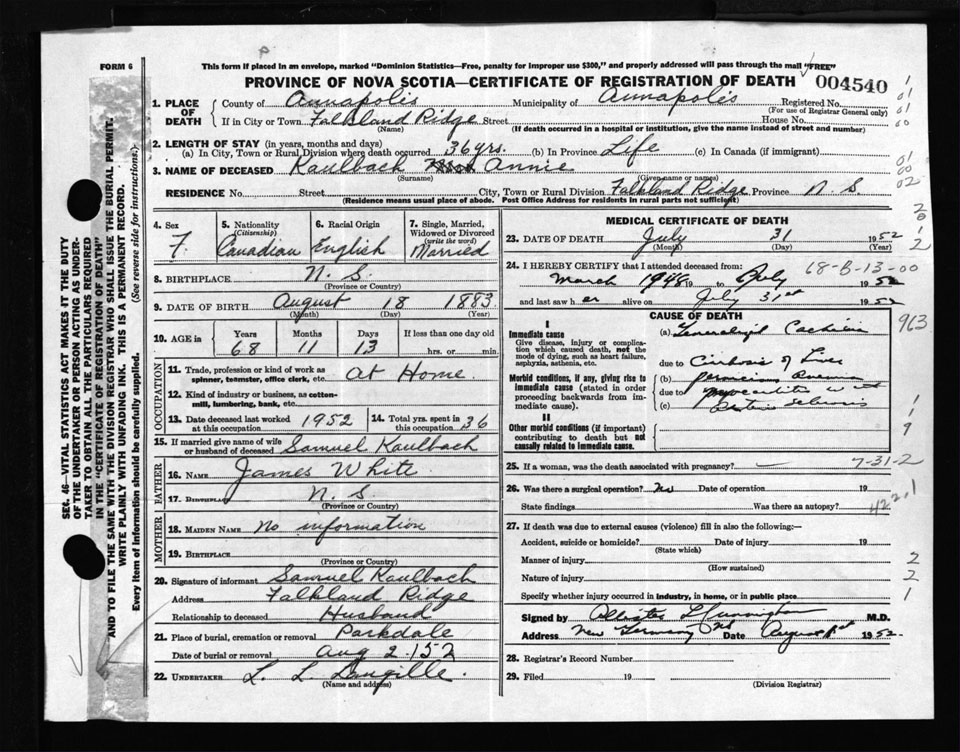 FORM 6
This form if placed in an envelope, marked "Dominion Statistics—Free, penalty for improper use $300," and properly addressed will pass through the mail "FREE"
PROVINCE OF NOVA SCOTIA—CERTIFICATE OF REGISTRATION OF DEATH 004540
1. PLACE OF DEATH
County of Annapolis Municipality of Annapolis Registered No.
(For use of Registrar General only)
If in City or Town Falkland Ridge Street House No.
(Name) (If death occurred in a hospital or institution, give the name instead of street and number)
2. LENGTH OF STAY (in years, months and days)
(a) In City, Town or Rural Division where death occurred 36 yrs. (b) In Province Life (c) In Canada (if immigrant)
3. NAME OF DECEASED Kaulbach Annie
(Surname) (Given name or names)
RESIDENCE No. Street City, Town or Rural Division Falkland Ridge Province N. S.
(Residence means usual place of abode. Post Office Address for residents in rural parts not sufficient)
4. Sex F.
5. Nationality (Citizenship) Canadian
6. Racial Origin English
7. Single, Married, Widowed or Divorced (write the word) Married
8. BIRTHPLACE N. S.
(Province or Country)
9. DATE OF BIRTH August 18 1883
(Month) (Day) (Year)
10. AGE in Years 68 Months 11 Days 13 If less than one day old hrs. or min.
OCCUPATION
11. Trade, profession or kind of work as spinner, teamster, office clerk, etc. at Home
12. Kind of industry or business, as cotton-mill, lumbering, bank, etc.
13. Date deceased last worked at this occupation 1952
14. Total yrs. spent in this occupation 36
15. If married give name of wife or husband of deceased Samuel Kaulbach
FATHER
16. NAME James White
17. BIRTHPLACE N. S.
(Province or Country)
MOTHER
18. MAIDEN NAME No information
19. BIRTHPLACE
(Province or Country)
20. Signature of informant Samuel Kaulbach
Address Falkland Ridge
Relationship to deceased Husband
21. Place of burial, cremation or removal Parkdale
Date of burial or removal Aug 2. 152
22. UNDERTAKER L. L. Langille.
(Name and address)
MEDICAL CERTIFICATE OF DEATH
23. DATE OF DEATH July 31 1952
(Month) (Day) (Year)
24. I HEREBY CERTIFY that I attended deceased from: 68-B-13-00
March 1948 19 to July 1952
and last saw her alive on July 31st 1952
CAUSE OF DEATH 963
I
Immediate cause
Give disease, injury or complication which caused death, not the mode of dying, such as heart failure, asphyxia, asthenia, etc.
(a)
due to Cirrhosis of Liver
Morbid conditions, if any, giving rise to immediate cause (stated in order proceeding backwards from immediate cause).
(b) pernicious
due to myocarditis
(c)
II
Other morbid conditions (if important) contributing to death but not causally related to immediate cause.
25. If a woman, was the death associated with pregnancy? — 7-31-2
26. Was there a surgical operation? no Date of operation 19
State findings Was there an autopsy? 422.1
27. If death was due to external causes (violence) fill in also the following:—
Accident, suicide or homicide? Date of injury 19
(State which)
Manner of injury 2
(How sustained)
Nature of injury 2
Specify whether injury occurred in industry, in home, or in public place 1
Signed by M.D.
Address New Germany NS Date August 1st 1952
28. Registrar's Record Number
29. Filed 19
(Division Registrar)
SEC. 46—VITAL STATISTICS ACT MAKES IT THE DUTY
OF THE UNDERTAKER OR PERSON ACTING AS UNDER-
TAKER TO OBTAIN ALL THE PARTICULARS REQUIRED
IN THE "CERTIFICATE OF REGISTRATION OF DEATH"
AND TO FILE THE SAME WITH THE DIVISION REGISTRAR WHO SHALL ISSUE THE BURIAL PERMIT.
WRITE PLAINLY WITH UNFADING INK. THIS IS A PERMANENT RECORD.
Every item of information should be carefully supplied. (See reverse side for instructions.)